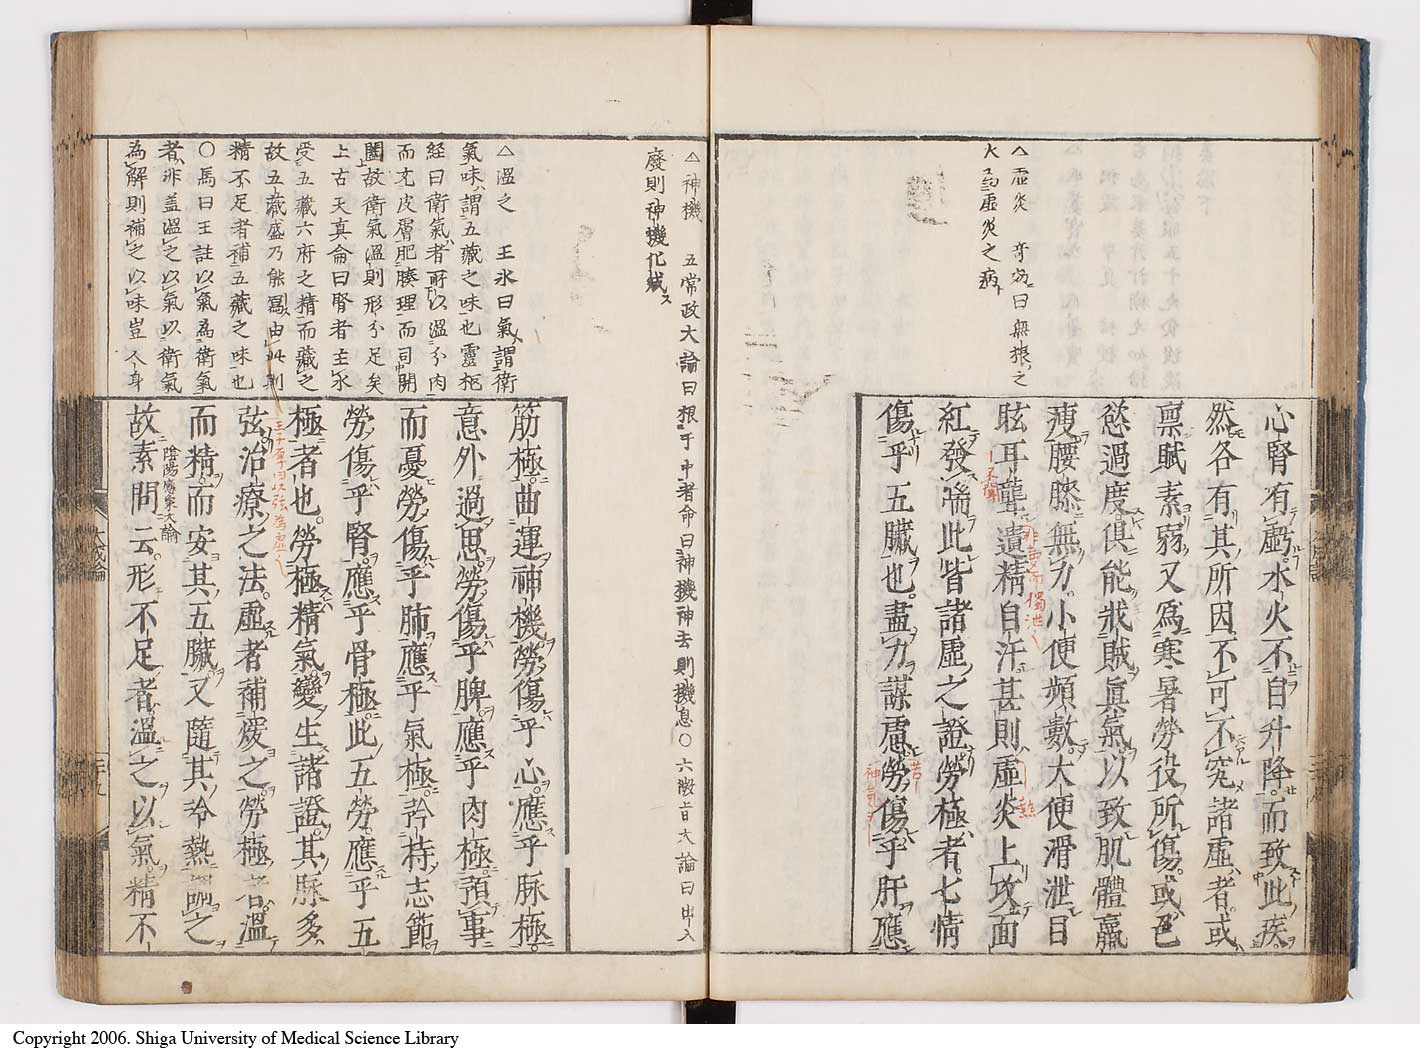 心腎有虧水火不自升降而致此疾
然各有其所因不可不究諸虛者或
禀賦素弱又爲寒暑勞役所傷或色
慾過度俱能戕賊眞氣以致肌體羸
瘦腰膝無力小便頻數大便滑泄目
眩耳聾遺精自汗甚則虛炎上攻面
紅發喘此皆諸虛之證勞極者七情
傷乎五臟也盡力謀慮勞傷乎肝應
△虛炎 奇効曰無根之
火爲虛炎之病
△神機 五常政大論曰根于中者命曰神機神去則機息○六微旨大論曰出入
廢則神機化滅
△溫之 王氷曰氣謂衛
氣味謂五藏之味也靈樞
経曰衛氣者所以溫分肉
而充皮膚肥腠理而司開
闔故衛氣溫則形分足矣
上古天真侖曰腎者主氷
受五藏六府之精而藏之
故五藏盛乃能寫由此則
精不足者補五藏之味也
○馬曰王註以氣為衛氣
者非盖溫之以氣以衛氣
為解則補之以味豈人身
筋極曲運神機勞傷乎心應乎脉極
意外過思勞傷乎脾應乎肉極預事
而憂勞傷乎肺應乎氣極矜持志節
勞傷乎腎應乎骨極此五勞應乎五
極者也勞極精氣變生諸證其脉多
弦治療之法虛者補煖之勞極者溫
而精而安其五臟又隨其冷熱調之
陰陽應象大論
故素問云形不足者溫之以氣精不
大成論
二十九